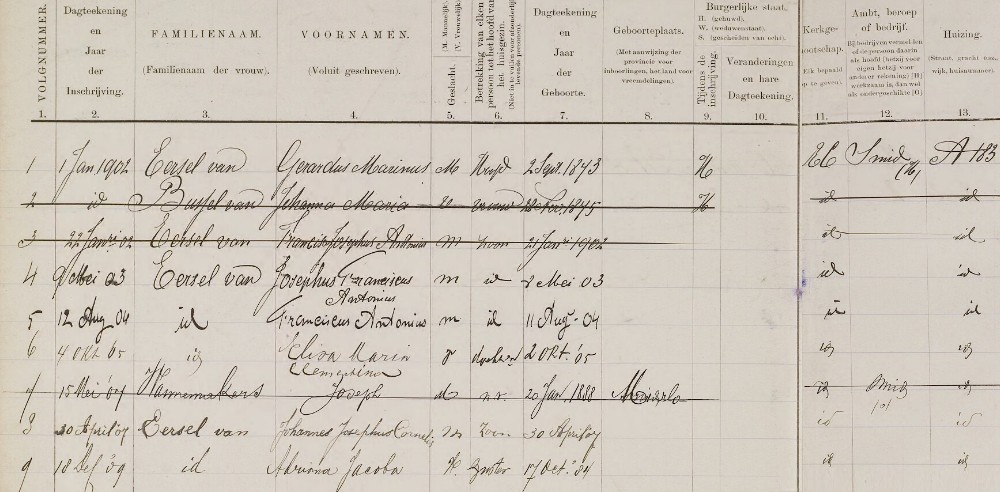 VOLGNUMMER.
Dagteekening en Jaar der Inschrijving.
FAMILIENAAM.
(Familienaam der vrouw).
VOORNAMEN.
(Voluit geschreven).
Geslacht. (M. Mannelijk.) (V. Vrouwelijk.)
Betrekking van elken persoon tot het hoofd van het huisgezin.
Dagteekening en Jaar der Geboorte.
Geboorteplaats.
(Met aanwijzing der provincie voor inboorlingen, het land voor vreemdelingen.)
Burgerlijke staat.
H. (gehuwd).
W. (weduwenstaat).
S. (gescheiden van echt).
Tijdens de inschrijving.
Veranderingen en hare Dagteekening.
Kerkge-
nootschap.
Ambt, beroep of bedrijf.
Huizing.
(Straat, gracht enz., wijk, huisnummer).
1. 2. 3. 4. 5. 6. 7. 8. 9. 10. 11. 12. 13.
1 1 Jan. 1902 Eersel van Gerardus Marinus M Hoofd 2 Sept. 1873 H RC Smid (H) A 183
2 id Bussel van Johanna Maria v vrouw 1875 H id id
3 22 Janri 02 Eersel van Franciscus Josephus Antonius m zoon 21 Janri 1902 id id
4 Mei 03 Eersel van Josephus Franciscus Antonius m id 2 Mei 03 id id
5 12 Aug 04 id Franciscus Antonius m id 11 Aug. 04 id id
6 4 Okt. '05 id Maria Clementina v dochter 2 Okt. '05 id id
7 15 Mei '07 Wannemakers Joseph m n.v. 20 Jan. 1888 id smid (O) id
8 30 April '07 Eersel van Johannes Josephus Cornelis m zoon 30 April '07 id id
9 18 '09 id Adriana Jacoba V. zuster 17 Oct. 84 id id